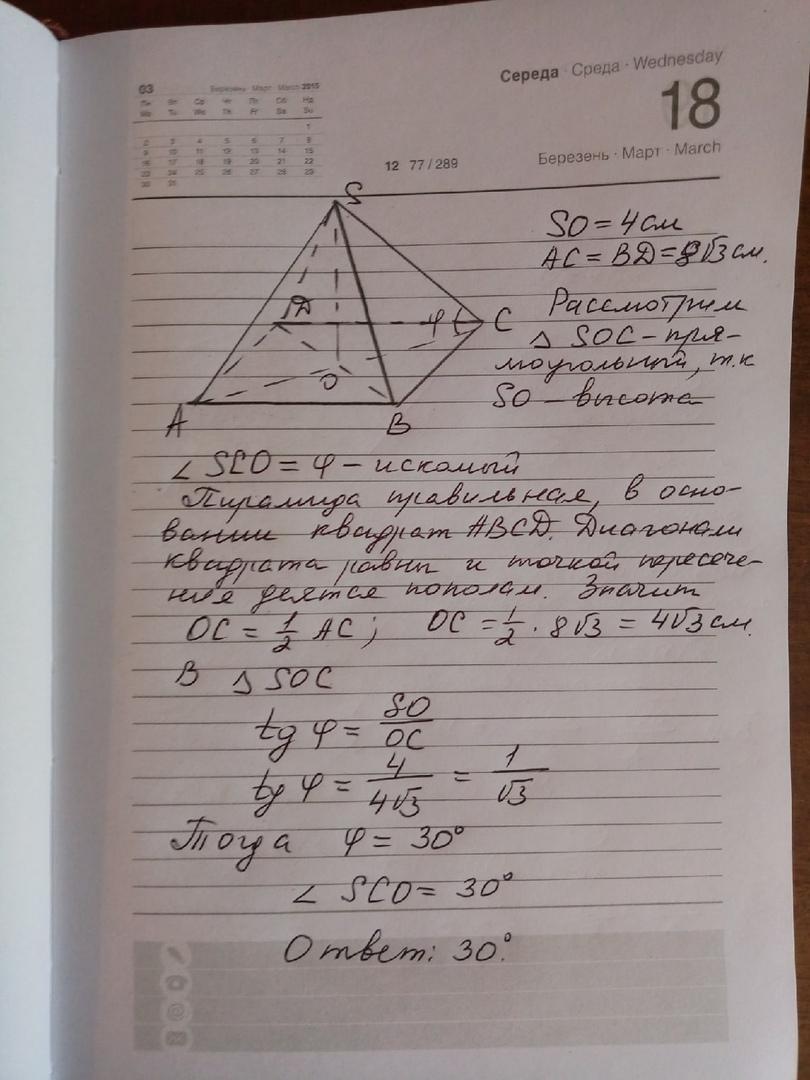 03 Березень · Март · March 2015
Пн Вт Ср Чт Пт Сб Нд
Mo Tu We Th Fr Sa Su
1
2 3 4 5 6 7 8
9 10 11 12 13 14 15
16 17 18 19 20 21 22
23 24 25 26 27 28 29
30 31
Середа · Среда · Wednesday
18
12 77 / 289
Березень · Март · March
S
D
φ
C
O
A
B
SO = 4 см
AC = BD = 8√3 см.
Рассмотрим
△ SOC – пря-
моугольный, т.к
SO – высота
∠ SCO = φ – искомый
Пирамида правильная, в осно-
вании квадрат ABCD. Диагонали
квадрата равны и точкой пересече-
ния делятся пополам. Значит
OC = 1/2 AC; OC = 1/2 · 8√3 = 4√3 см.
В △ SOC
tg φ = SO/OC
tg φ = 4/4√3 = 1/√3
Тогда φ = 30°
∠ SCO = 30°
Ответ: 30°.